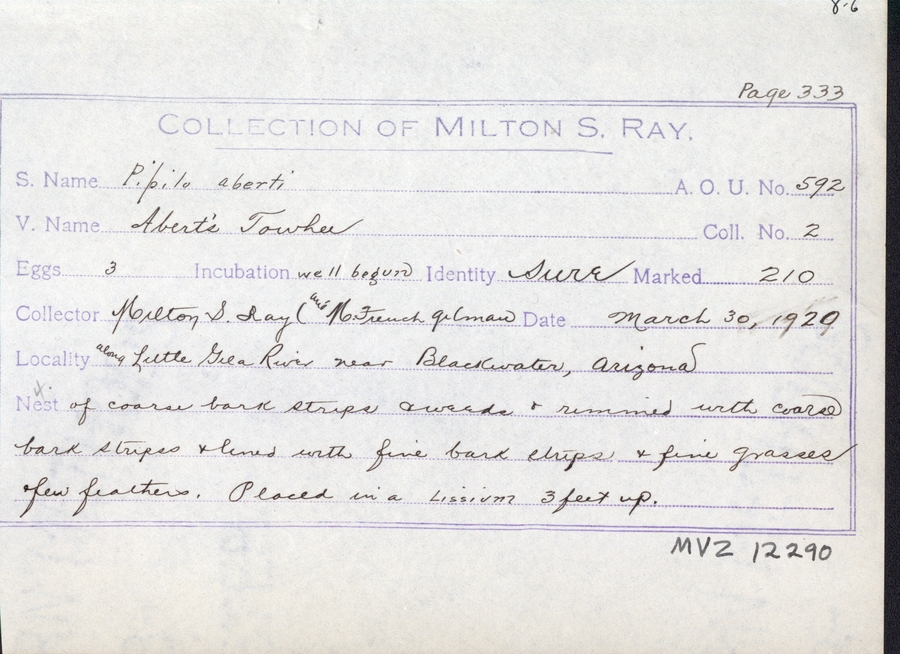 8-6
Page 333
COLLECTION OF MILTON S. RAY.
S. Name Pipilo aberti A. O. U. No. 592
V. Name Abert's Towhee Coll. No. 2
Eggs 3 Incubation well begun Identity Sure Marked 210
Collector Milton S. Ray (and M. French Gilman Date March 30, 1929
Locality along Little Gila River near Blackwater, Arizona
Nest of coarse bark strips & weeds & rimmed with coarse
bark strips & lined with fine bark strips & fine grasses
& few feathers. Placed in a Lissium 3 feet up.
MVZ 12290